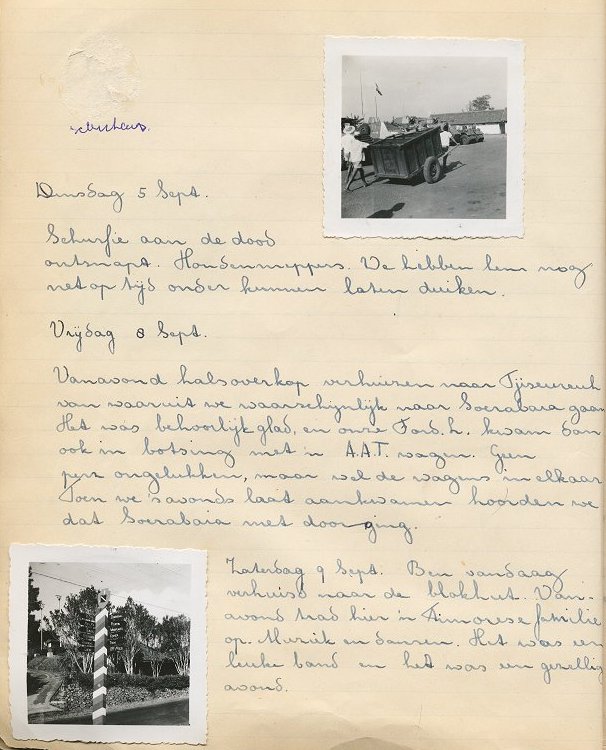 Dinsdag 5 Sept.
Schurfie aan de dood
ontsnapt. Hondenmeppers. We hebben hem nog
net op tijd onder kunnen laten duiken.
Vrijdag 8 Sept.
Vanavond halsoverkop verhuizen naar Tjisereuh
van waaruit we waarschijnlijk naar Soerabaia gaan
Het was behoorlijk glad, en onze Ford. L. kwam dan
ook in botsing met 'n A.A.T. wagen. Geen
pers ongelukken, maar wel de wagens in elkaar
Toen we 's avonds laat aankwamen hoorden we
dat Soerabaia niet door ging.
Zaterdag 9 Sept. Ben vandaag
verhuisd naar de blokhut. Van-
avond trad hier 'n Timorese familie
op. Muziek en dansen. Het was een
leuke band en het was een gezellig
avond.